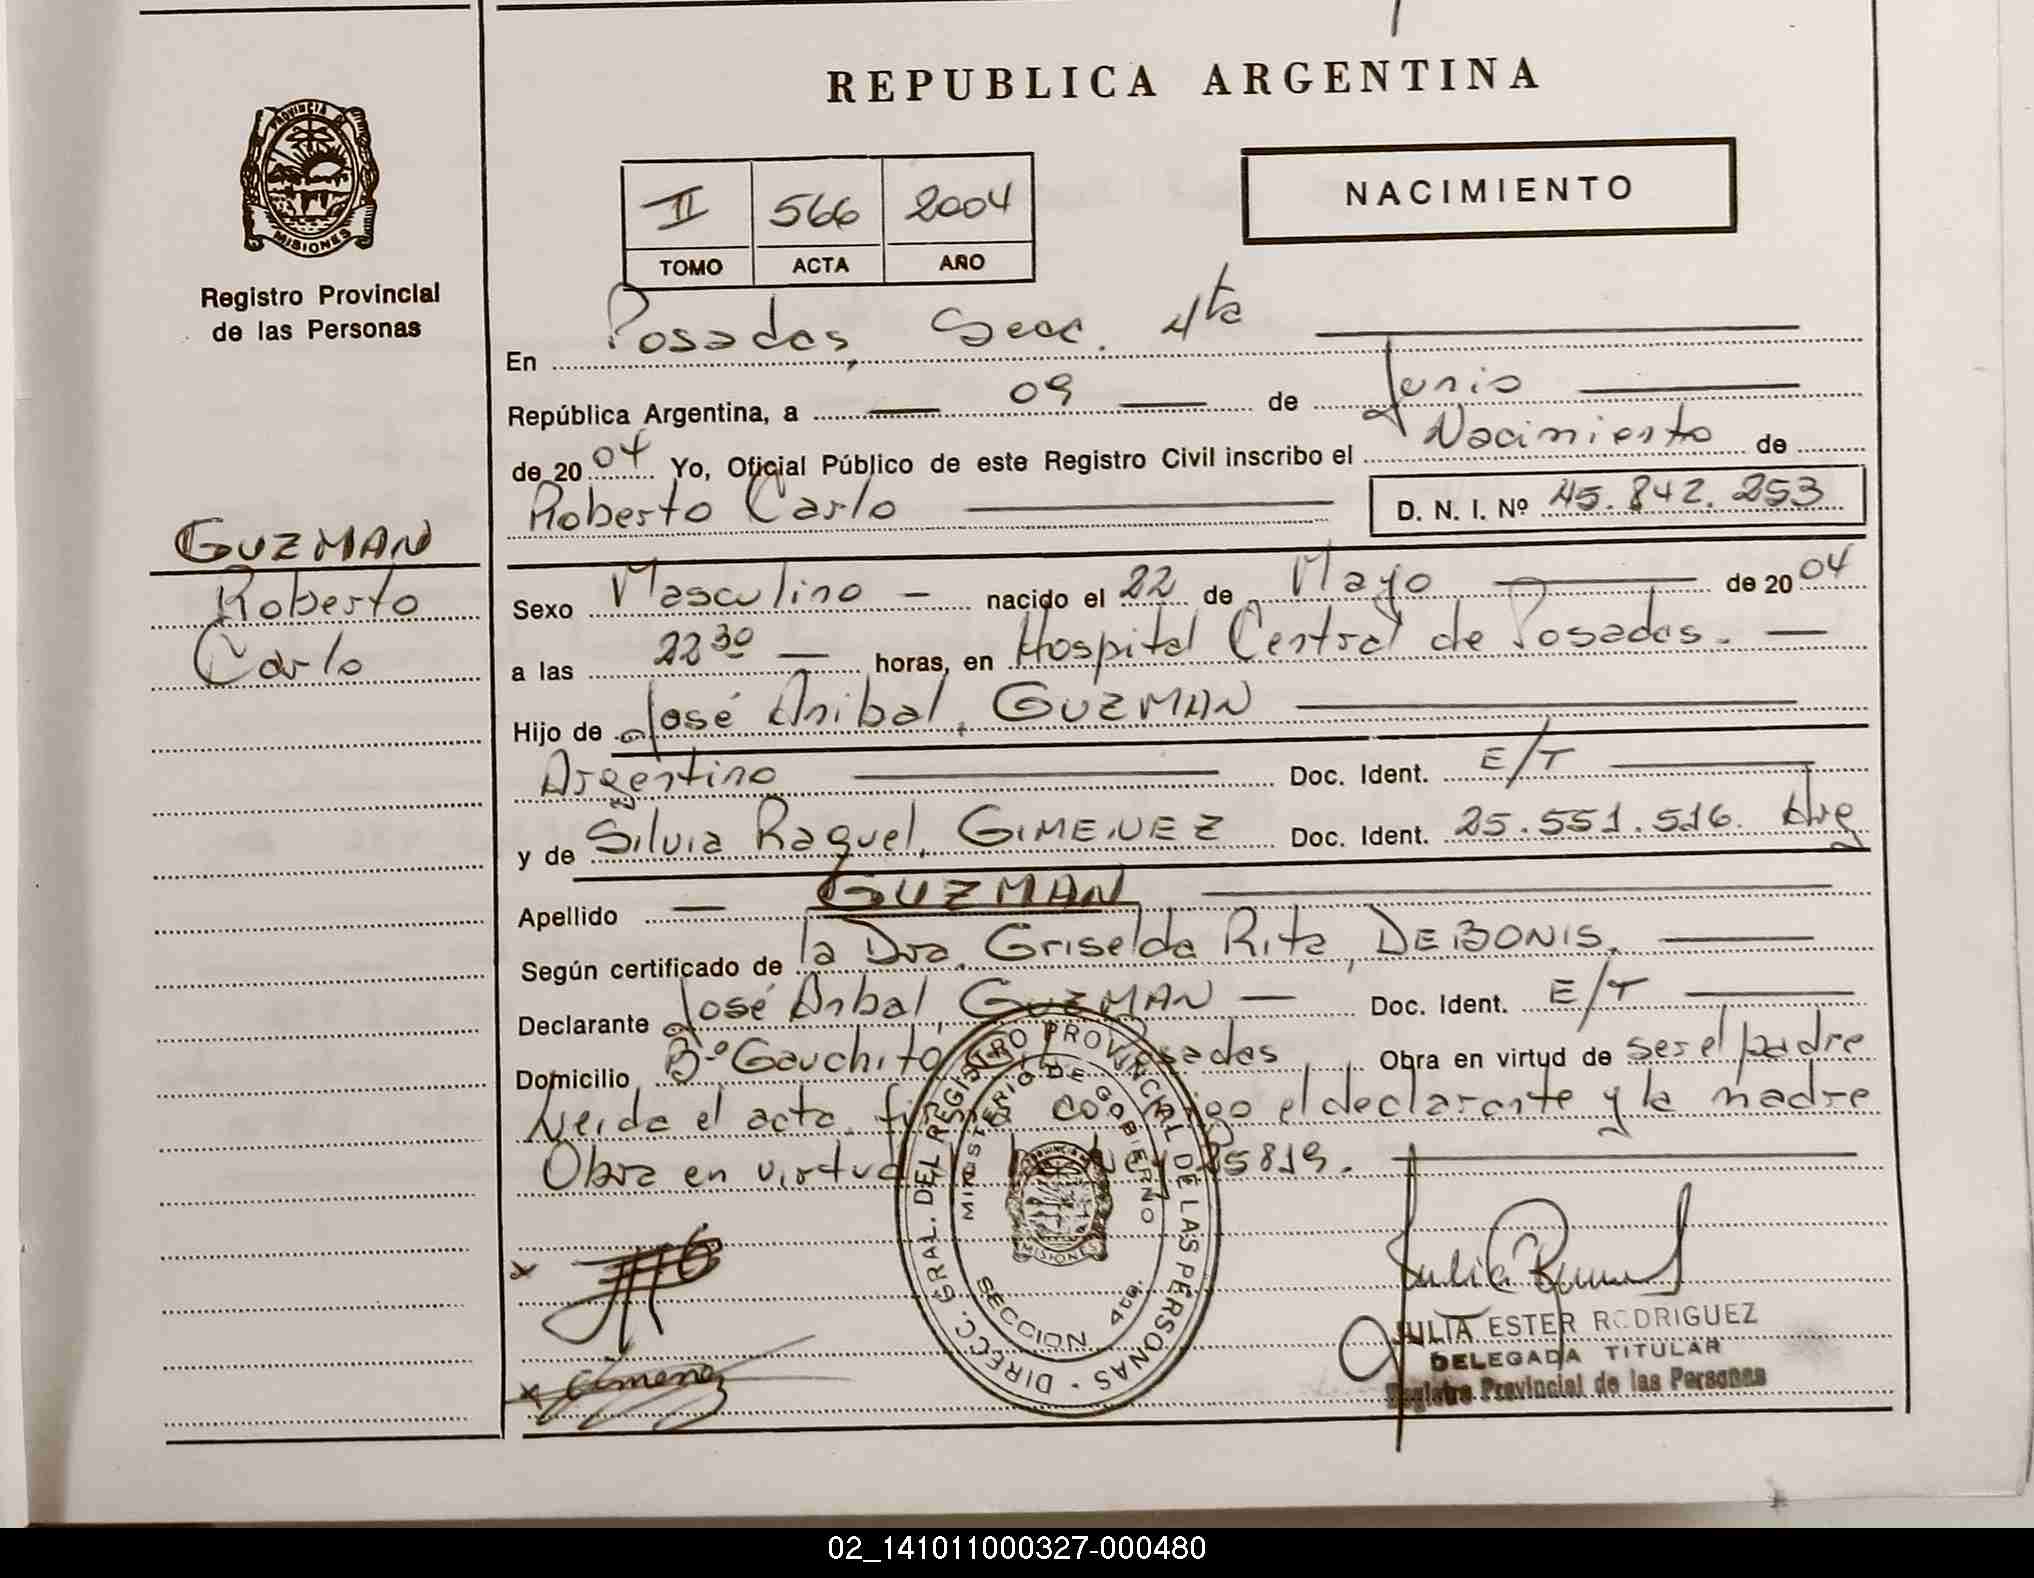 REPUBLICA ARGENTINA
PROVINCIA DE
MISIONES
Registro Provincial
de las Personas
NACIMIENTO
II 566 2004
TOMO ACTA AÑO
En Posadas, Secc. 4ta
República Argentina, a 09 de Junio
de 2004 Yo, Oficial Público de este Registro Civil inscribo el Nacimiento de
Roberto Carlo D. N. I. Nº 45.842.253
GUZMAN
Roberto
Carlo
Sexo Masculino - nacido el 22 de Mayo de 2004
a las 22 30 horas, en Hospital Central de Posadas.
Hijo de José Anibal, GUZMAN
Argentino Doc. Ident. E/T
y de Silvia Raquel, GIMENEZ Doc. Ident. 25.551.516. Arg
Apellido GUZMAN
Según certificado de la Dra. Griselda Rita, DEBONIS.
Declarante José Anbal, GUZMAN Doc. Ident. E/T
Domicilio Bº Gauchito Posadas Obra en virtud de ser el padre
Leida el acta firma conmigo el declarante y la madre
Obra en virtud Ley 25819.
DIRECC. GRAL. DEL REGISTRO PROVINCIAL DE LAS PERSONAS
MINISTERIO DE GOBIERNO
MISIONES
SECCION 4ta.
x
x Gimenez
JULIA ESTER RODRIGUEZ
DELEGADA TITULAR
Registro Provincial de las Personas
02_141011000327-000480